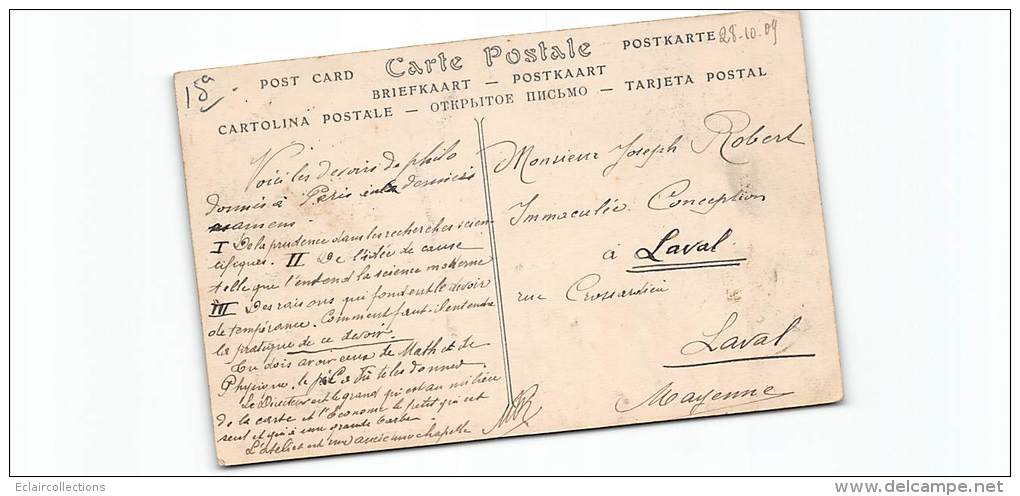 15a
28-10-09
POST CARD Carte Postale POSTKARTE
BRIEFKAART — POSTKAART
CARTOLINA POSTALE — ОТКРЫТОЕ ПИСЬМО — TARJETA POSTAL
Voici les devoirs de philo
donnés à Paris les derniers
examens
I De la prudence dans les recherches scien-
tifiques. II De l'idée de cause
telle que l'entend la science moderne
III Des raisons qui fondent le devoir
de tempérance. Comment faut-il entendre
la pratique de ce devoir.
Tu dois avoir ceux de Math et de
Physique, le te les donne
Le Directeur est le grand qui est au milieu
de la carte et l'Econome le petit qui est
seul et qui a une grande barbe
L'atelier est une ancienne chapelle
Monsieur Joseph Robert
Immaculée Conception
à Laval
rue Crossardière
Laval
Mayenne
Eclaircollections
www.delcampe.net